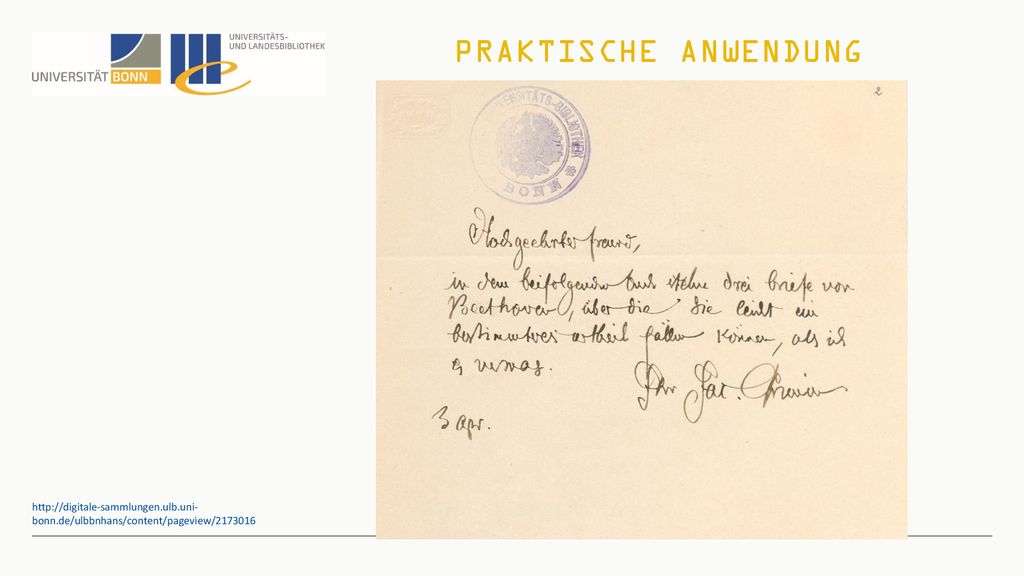 UNIVERSITÄT BONN
UNIVERSITÄTS-
UND LANDESBIBLIOTHEK
PRAKTISCHE ANWENDUNG
2
UNIVERSITÄTS-BIBLIOTHEK
BONN
Hochgeehrter freund,
in dem beifolgenden stehn drei briefe von
Beethoven, über die Sie leicht ein
bestimmteres urtheil fällen können, als ich
es vermag.
Ihr Jac.
3 apr.
http://digitale-sammlungen.ulb.uni-
bonn.de/ulbbnhans/content/pageview/2173016